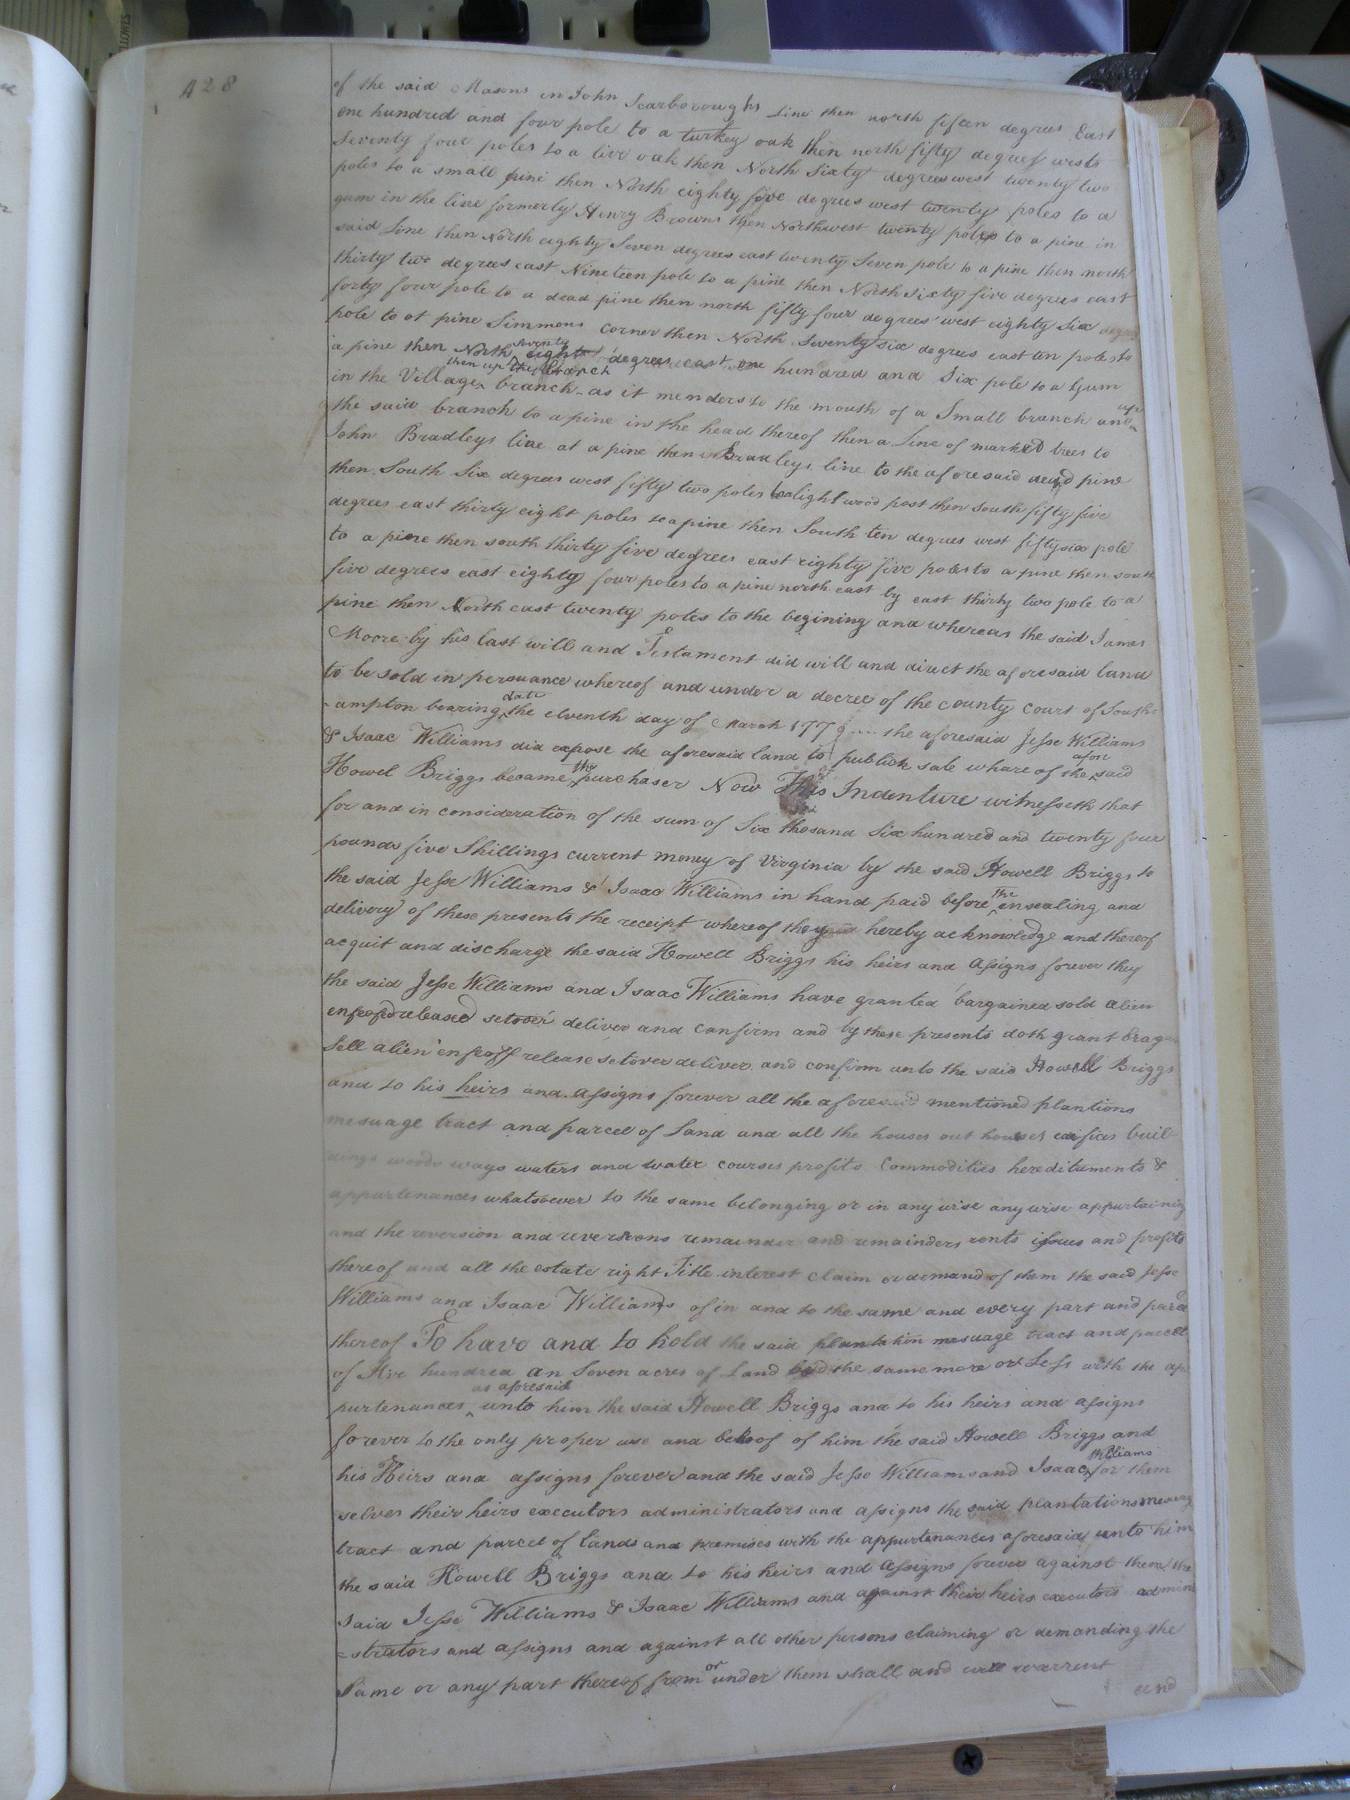 428
of the said Masons in John Scarboroughs line then north fifteen degrees East
one hundred and four pole to a turkey oak then north fifty degrees west
Seventy four poles to a live oak then North Sixty degrees west twenty two
poles to a small pine then North eighty five degrees west twenty poles to a
gum in the line formerly Henry Browns then Northwest twenty poles to a pine in
said Line then North eighty Seven degrees east twenty Seven pole to a pine then north
thirty two degrees east Nineteen pole to a pine then North Sixty five degrees east
forty four pole to a dead pine then north fifty four degrees west eighty Six degrees
pole to at pine Simmons Corner then North Seventy Six degrees east ten poles to
a pine then North seventy eight degrees east one hundred and Six pole to a Gum
in the Village then up the branch branch as it menders to the mouth of a Small branch and up
the said branch to a pine in the head thereof then a Line of marked trees to
John Bradleys line at a pine then Bradleys line to the aforesaid dead pine
then South Six degrees west fifty two poles to a light wood post then South fifty five
degrees east thirty eight poles to a pine then South ten degrees west fifty six pole
to a pine then south thirty five degrees east eighty five poles to a pine then south
five degrees east eighty four poles to a pine north east by east thirty two pole to a
pine then North east twenty poles to the begining and whereas the said James
Moore by his last will and Testament did will and direct the aforesaid land
to be sold in persuance whereof and under a decree of the county Court of South-
-ampton bearing date the eleventh day of March 1779 .... the aforesaid Jesse Williams
& Isaac Williams did expose the aforesaid land to publick sale whare of the afore said
Howel Briggs became the purchaser Now This Indenture witnesseth that
for and in consideration of the sum of Six thosand Six hundred and twenty four
pounds five Shillings current money of Virginia by the said Howell Briggs to
the said Jesse Williams & Isaac Williams in hand paid before the ensealing and
delivery of these presents the receipt whereof they hereby acknowledge and thereof
acquit and discharge the said Howell Briggs his heirs and Assigns forever they
the said Jesse Williams and Isaac Williams have granted bargained sold alien
enfeofed released setover deliver and confirm and by these presents doth grant bragan
Sell alien enfeoff release setover deliver and confirm unto the said Howell Briggs
and to his heirs and Assigns forever all the aforesaid mentioned plantions
mesuage tract and parcel of Land and all the houses out houses edifices buil
dings woods ways waters and water courses profits Commodities hereditaments &
appurtenances whatsoever to the same belonging or in any wise any wise appurtaining
and the reversion and reversions remainder and remainders rents issues and profits
thereof and all the estate right Title interest claim or demand of them the said Jesse
Williams and Isaac Williams of in and to the same and every part and parcel
thereof To have and to hold the said plantation mesuage tract and parcel
of Five hundred an Seven acres of Land be the same more or Less with the ap
purtenances as aforesaid unto him the said Howell Briggs and to his heirs and assigns
forever to the only proper use and behoof of him the said Howell Briggs and
his Heirs and assigns forever and the said Jesse Williams and Isaac Williams for them
selves their heirs executors administrators and assigns the said plantations mesuag
tract and parcel of lands and premises with the appurtenances aforesaid unto him
the said Howell Briggs and to his heirs and Assigns forever against them the
said Jesse Williams & Isaac Williams and against their heirs executors admini
=strators and assigns and against all other persons claiming or demanding the
Same or any part thereof from or under them shall and will warrent
and